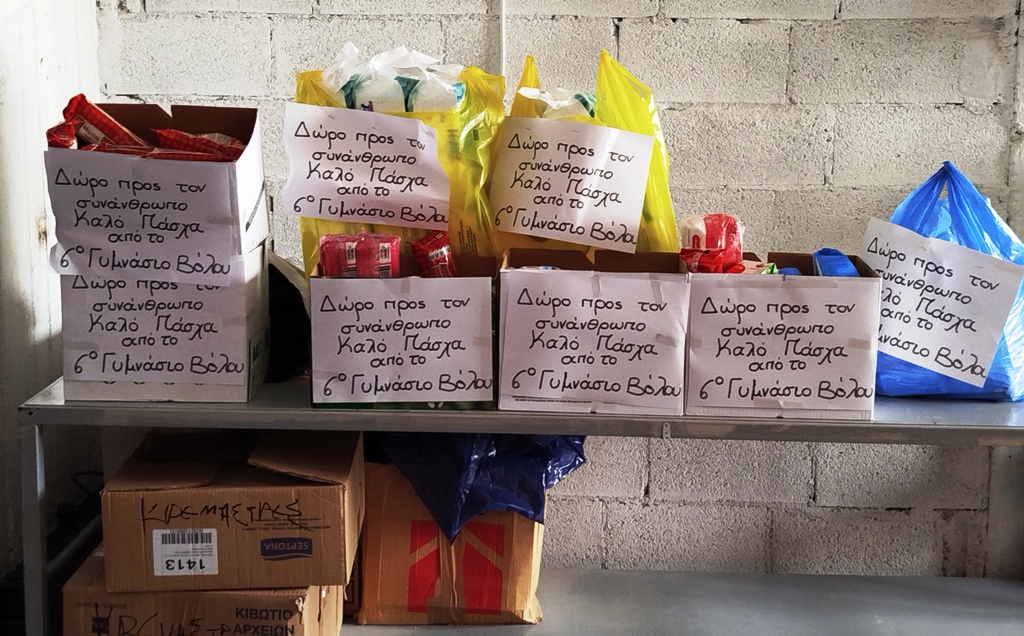 Δώρο προς τον
συνάνθρωπο
Καλό Πάσχα
από το
6ο Γυμνάσιο Βόλου
Δώρο προς τον
συνάνθρωπο
Καλό Πάσχα
από το
6ο Γυμνάσιο Βόλου
Δώρο προς τον
συνάνθρωπο
Καλό Πάσχα
από το
6ο Γυμνάσιο Βόλου
Δώρο προς τον
συνάνθρωπο
Καλό Πάσχα
από το
6ο Γυμνάσιο Βόλου
Δώρο προς τον
συνάνθρωπο
Καλό Πάσχα
από το
6ο Γυμνάσιο Βόλου
Δώρο προς τον
συνάνθρωπο
Καλό Πάσχα
από το
6ο Γυμνάσιο Βόλου
Δώρο προς τον
συνάνθρωπο
Καλό Πάσχα
από το
6ο Γυμνάσιο Βόλου
Δώρο προς τον
συνάνθρωπο
Πάσχα
από το
Γυμνάσιο Βόλου
ΚΡΕΜΑΣΤΡΕΣ
SEPTONA
1413
ΚΙΒΩΤΙΟ
ΑΡΧΕΙΩΝ